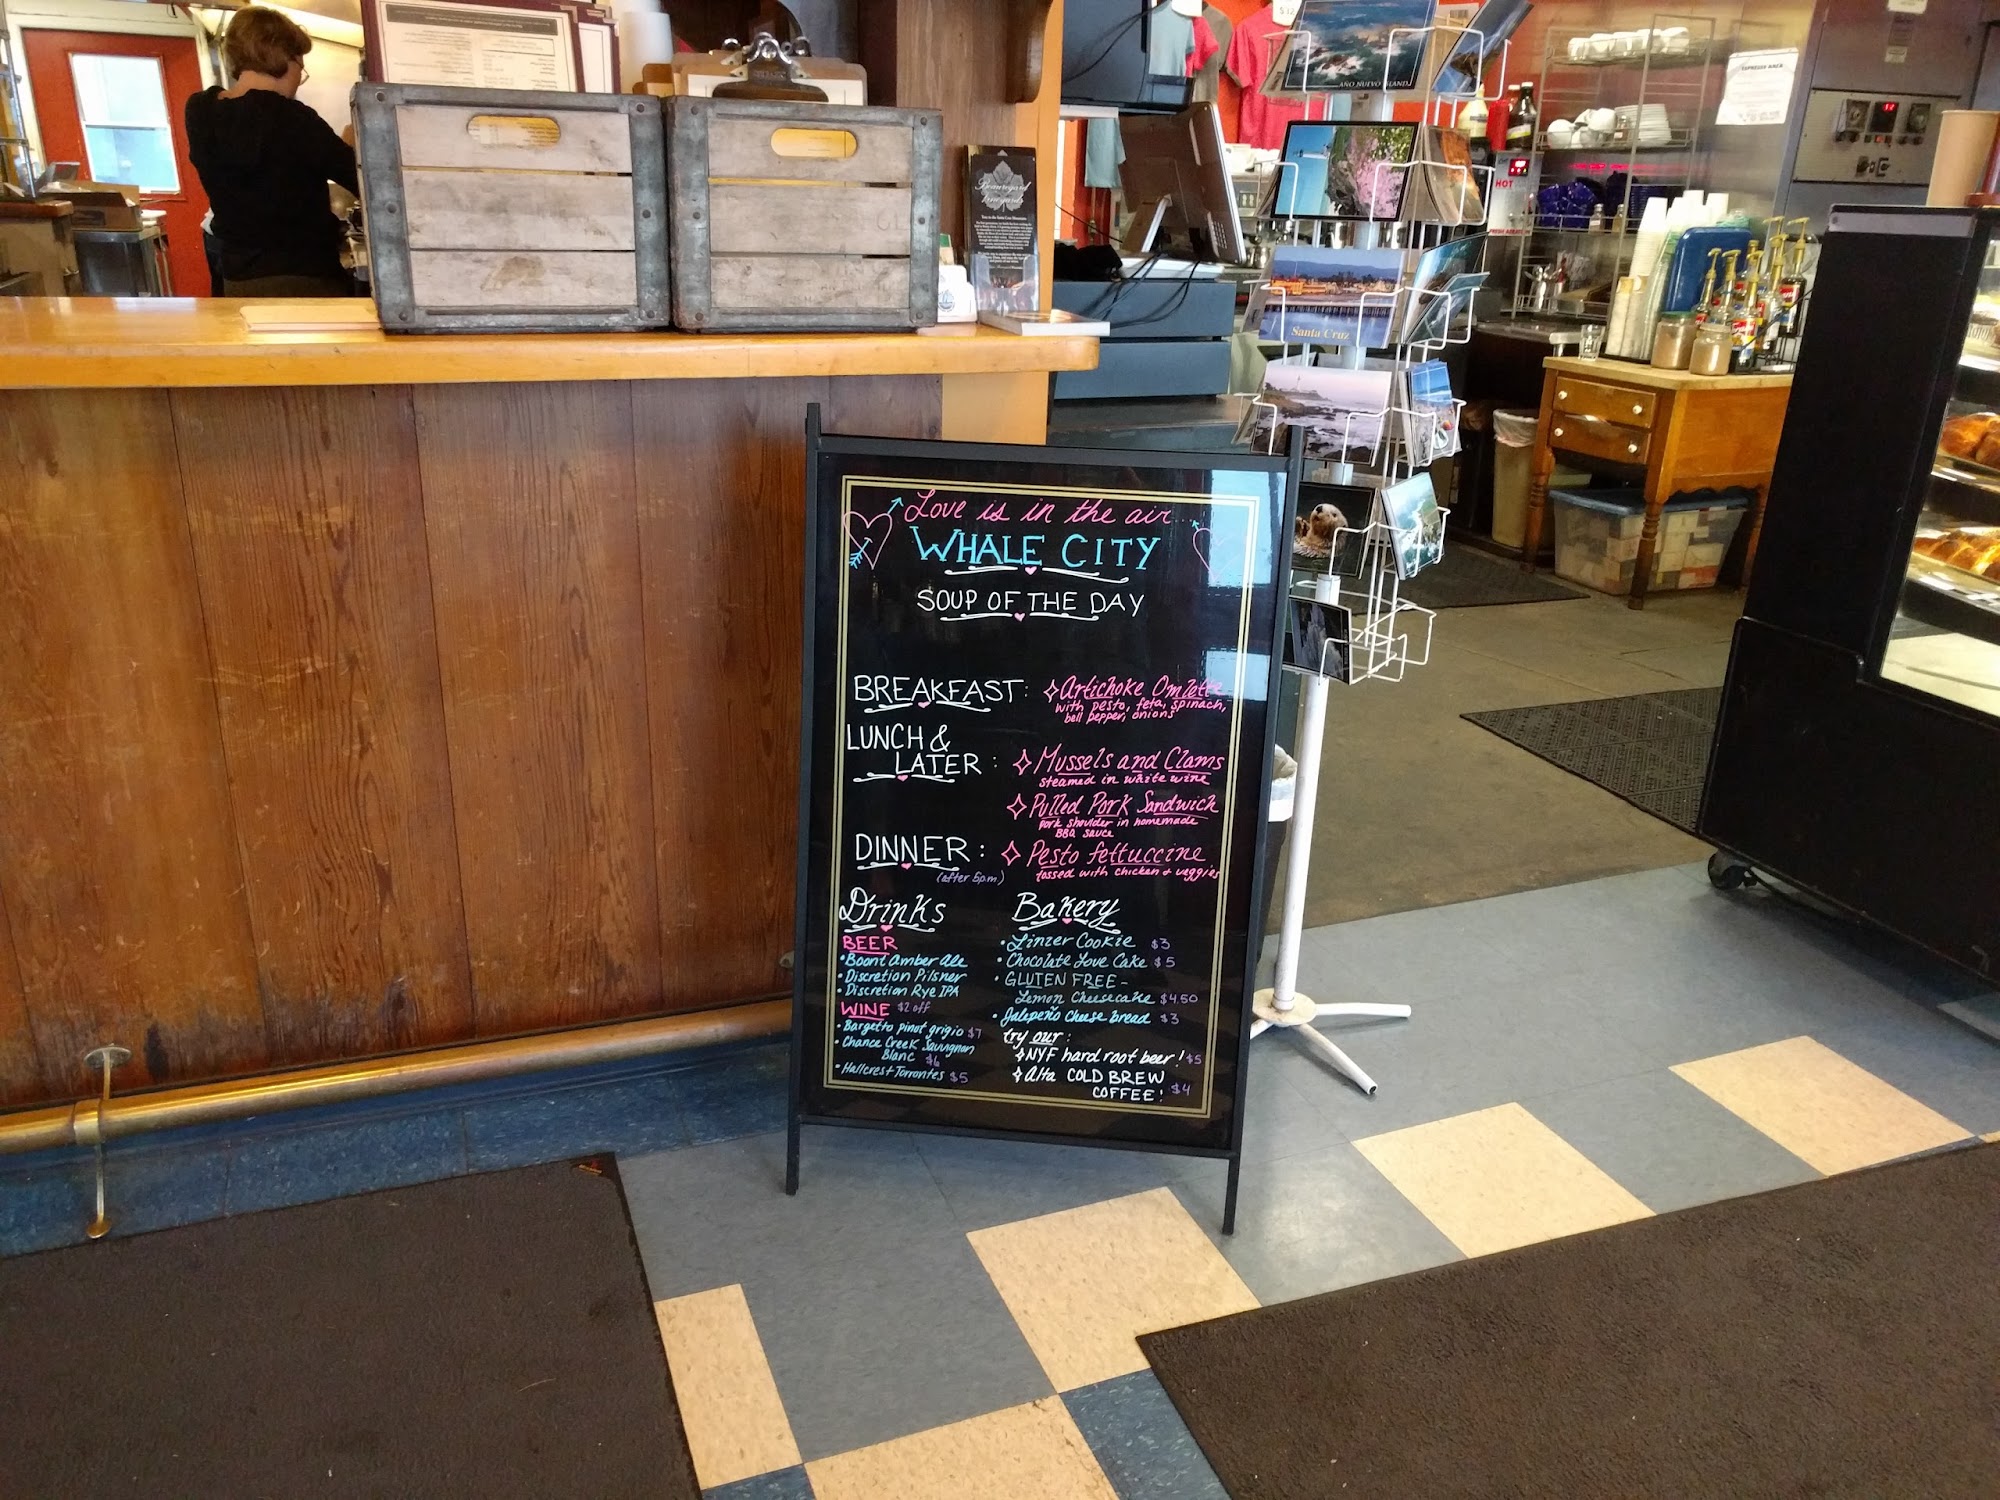 AÑO NUEVO ISLAND
ESPRESSO AREA
HOT
Santa Cruz
Love is in the air...
WHALE CITY
SOUP OF THE DAY
BREAKFAST: Artichoke Omlette
with pesto, feta, spinach,
bell pepper, onions
LUNCH &
LATER : Mussels and Clams
steamed in white wine
Pulled Pork Sandwich
pork shoulder in homemade
BBQ sauce
DINNER : Pesto fettuccine
(after 5pm) tossed with chicken & veggies
Drinks
BEER
• Boont Amber Ale
• Discretion Pilsner
• Discretion Rye IPA
WINE $2 off
• Bargetto pinot grigio $7
• Chance Creek Sauvignon
Blanc $6
• Hallcrest Torrontes $5
Bakery
• Linzer Cookie $3
• Chocolate Love Cake $5
• GLUTEN FREE -
Lemon Cheesecake $4.50
• Jalepeño Cheese bread $3
try our:
NYF hard root beer! $5
Alta COLD BREW
COFFEE! $4